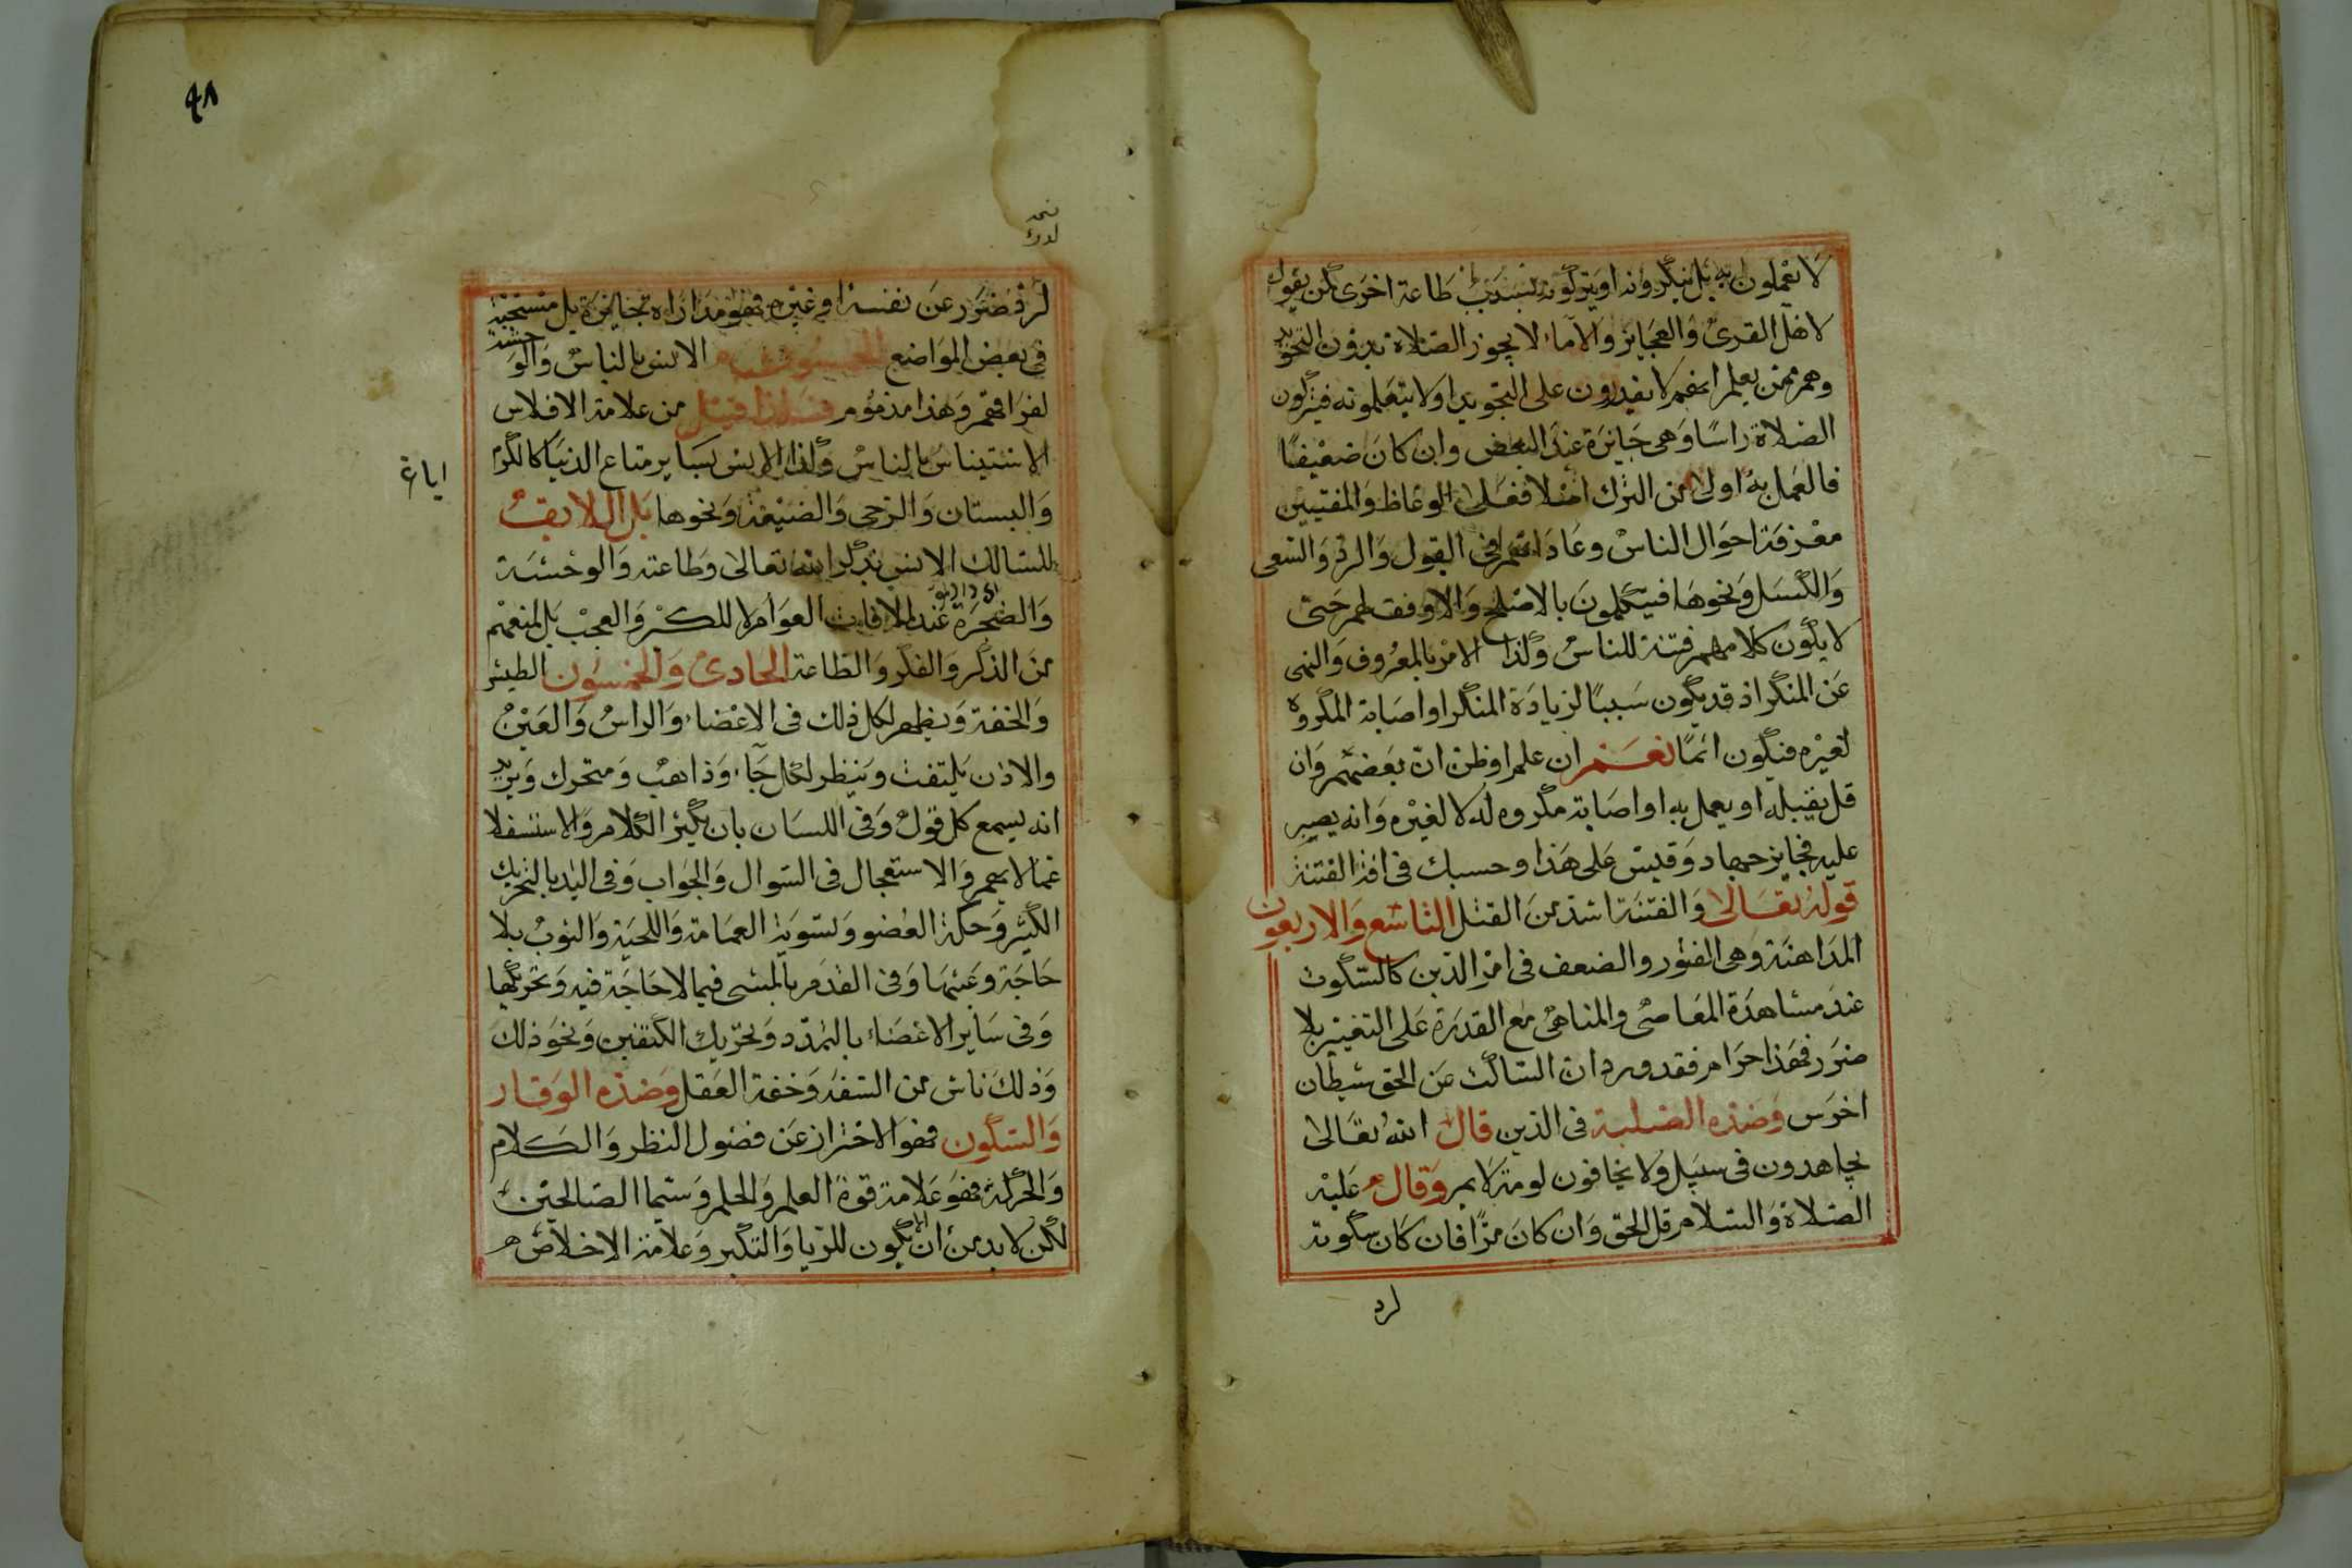 لا يعملون به بل ينكرونه او يتركونه بسببه طاعة اخرى كمن يقول
لاهل القرى والعجايز والآماء لا يجوز الصلاة بدون التجويد
وهم ممن يعلم انهم لا يقدرون على التجويد او لا يتعلمونه فيتركون
الصلاة راسًا وهى جايزة عند البعض وان كان ضعيفًا
فالعمل به اولى من الترك اصلا فعلى الوعاظ والمفتيين
معرفة احوال الناس وعاداتهم فى القبول والرد والسعى
والكسل ونحوها فيتكلمون بالاصلح والاوفق لهم حتى
لا يكون كلامهم فتنة للناس وكذا الامر بالمعروف والنهى
عن المنكر اذ قد يكون سببًا لزيادة المنكر او اصابة المكروه
لغيره فيكون اثمًا نعم ان علم او ظن ان بعضهم وان
قل يقبله او يعمل به او اصابة مكروه له لا لغيره وانه يصبر
عليه فجايز جهاد وقيس على هذا وحسبك فى افة الفتنة
قوله تعالى والفتنة اشد من القتل التاسع والاربعون
المداهنة وهى الفتور والضعف فى امر الدين كالسكوت
عند مشاهدة المعاصى والمناهى مع القدرة على التغيير بلا
ضرر فهذا حرام فقد ورد ان الساكت عن الحق شيطان
اخرس وضده الصلبة فى الدين قال الله تعالى
يجاهدون فى سبيل ولا يخافون لومة لايم وقال عليه
الصلاة والسلام قل الحق وان كان مرًا فان كان سكوته
لرد
٤٨
لرفع ضرر عن نفسه او غيره فهو مداراه جايزة بل مستحبة
فى بعض المواضع الخمسون الانس بالناس والوحشة
لفراقهم وهذا مذموم فلذا قيل من علامة الافلاس
الاستيناس بالناس وكذا الانس بساير متاع الدنيا كالكرم
والبستان والرحى والضيعة ونحوها بل اللايق
للسالك الانس بذكر الله تعالى وطاعته والوحشة
والضجرة عند ملاقات العوام لا للكبر والعجب بل لمنعهم
من الذكر والفكر والطاعة الحادى والخمسون الطيش
والخفة ويظهر كل ذلك فى الاعضاء والراس والعين
والاذن يلتفت وينظر لكل جاء وذاهب ومتحرك ويريد
انه يسمع كل قول وفى اللسان بان يكثر الكلام والاستفسار
عما لا يهم والاستعجال فى السوال والجواب وفى اليد بالتحريك
الكثير وحكة العضو وتسوية العمامة واللحية والثوب بلا
حاجة وعبثها وفى القدم بالمشى فيما لا حاجة فيه وتحركها
وفى ساير الاعضاء بالتمدد وتحريك الكتفين ونحو ذلك
وذلك ناش من السفه وخفة العقل وضده الوقار
والسكون فهو الاحتراز عن فضول النظر والكلام
والحركة فهو علامة قوة العلم والحلم وسيما الصالحين
لكن لا بد من ان لا يكون للريا والتكبر وعلامة الاخلاص